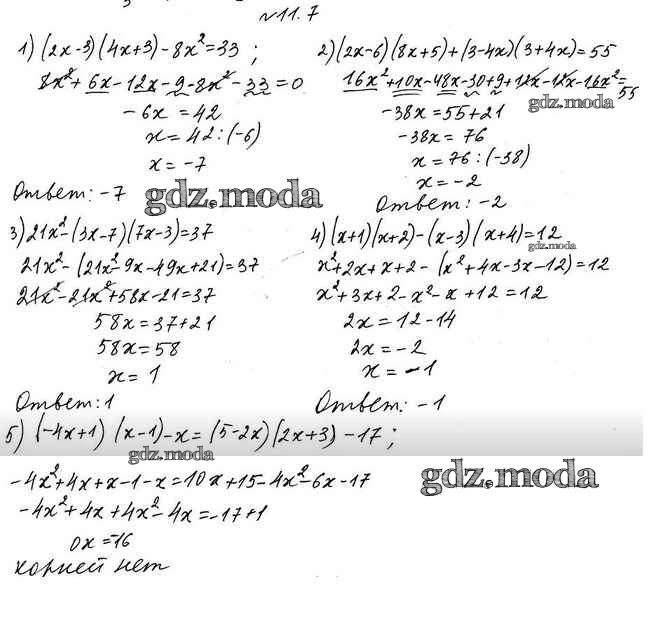 №11.7
1) (2x-3)(4x+3)-8x²=33 ;
8x²+6x-12x-9-8x²-33=0
-6x=42
x=42:(-6)
x=-7
Ответ: -7
2) (2x-6)(8x+5)+(3-4x)(3+4x)=55
16x²+10x-48x-30+9+12x-12x-16x²=
55
gdz.moda
-38x=55+21
-38x=76
x=76:(-38)
x=-2
Ответ: -2
gdz.moda
3) 21x²-(3x-7)(7x-3)=37
21x²-(21x²-9x-49x+21)=37
21x²-21x²+58x-21=37
58x=37+21
58x=58
x=1
Ответ: 1
4) (x+1)(x+2)-(x-3)(x+4)=12
gdz.moda
x²+2x+x+2-(x²+4x-3x-12)=12
x²+3x+2-x²-x+12=12
2x=12-14
2x=-2
x=-1
Ответ: -1
5) (-4x+1)(x-1)-x=(5-2x)(2x+3)-17;
gdz.moda
gdz.moda
-4x²+4x+x-1-x=10x+15-4x²-6x-17
-4x²+4x+4x²-4x=-17+1
0x=-16
корней нет